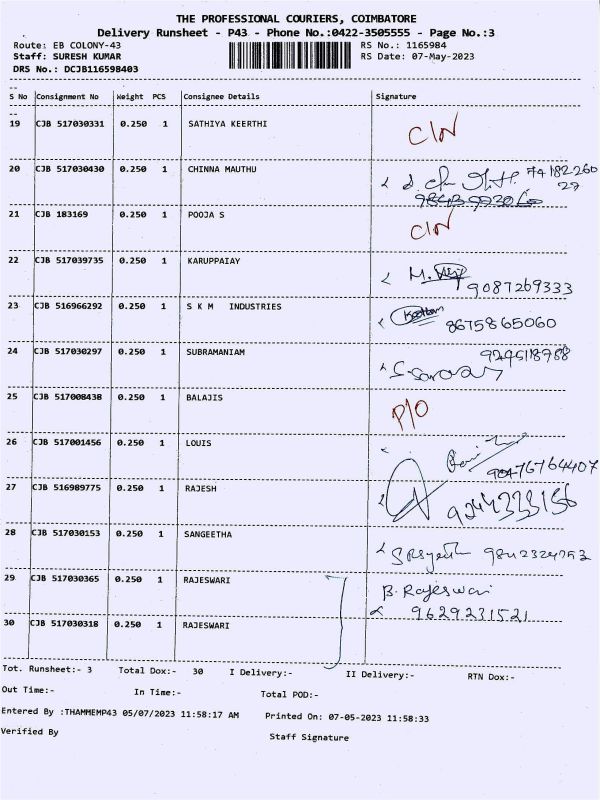 THE PROFESSIONAL COURIERS, COIMBATORE
Delivery Runsheet - P43 - Phone No.:0422-3505555 - Page No.:3
Route: EB COLONY-43 RS No.: 1165984
Staff: SURESH KUMAR RS Date: 07-May-2023
DRS No.: DCJB116598403
--
S No Consignment No Weight PCS Consignee Details Signature
--
19 CJB 517030331 0.250 1 SATHIYA KEERTHI C/N
20 CJB 517030430 0.250 1 CHINNA MAUTHU
21 CJB 183169 0.250 1 POOJA S C/N
22 CJB 517039735 0.250 1 KARUPPAIAY 9087269333
23 CJB 516966292 0.250 1 S K M INDUSTRIES 8675865060
24 CJB 517030297 0.250 1 SUBRAMANIAM
25 CJB 517008438 0.250 1 BALAJIS P/O
26 CJB 517001456 0.250 1 LOUIS
27 CJB 516989775 0.250 1 RAJESH
28 CJB 517030153 0.250 1 SANGEETHA
29 CJB 517030365 0.250 1 RAJESWARI B. Rajeswari
9629231521
30 CJB 517030318 0.250 1 RAJESWARI
Tot. Runsheet:- 3 Total Dox:- 30 I Delivery:- II Delivery:- RTN Dox:-
Out Time:- In Time:- Total POD:-
Entered By :THAMMEMP43 05/07/2023 11:58:17 AM Printed On: 07-05-2023 11:58:33
Verified By Staff Signature